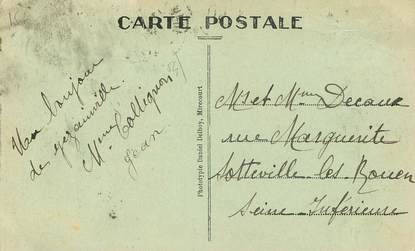 CARTE POSTALE
Un bonjour
de Gézainville.
Mme Collignon
Jean
Phototypie Daniel Delboy, Mirecourt
Mr et Mme Decaux
rue Marguerite
Sotteville les Rouen
Seine Inférieure